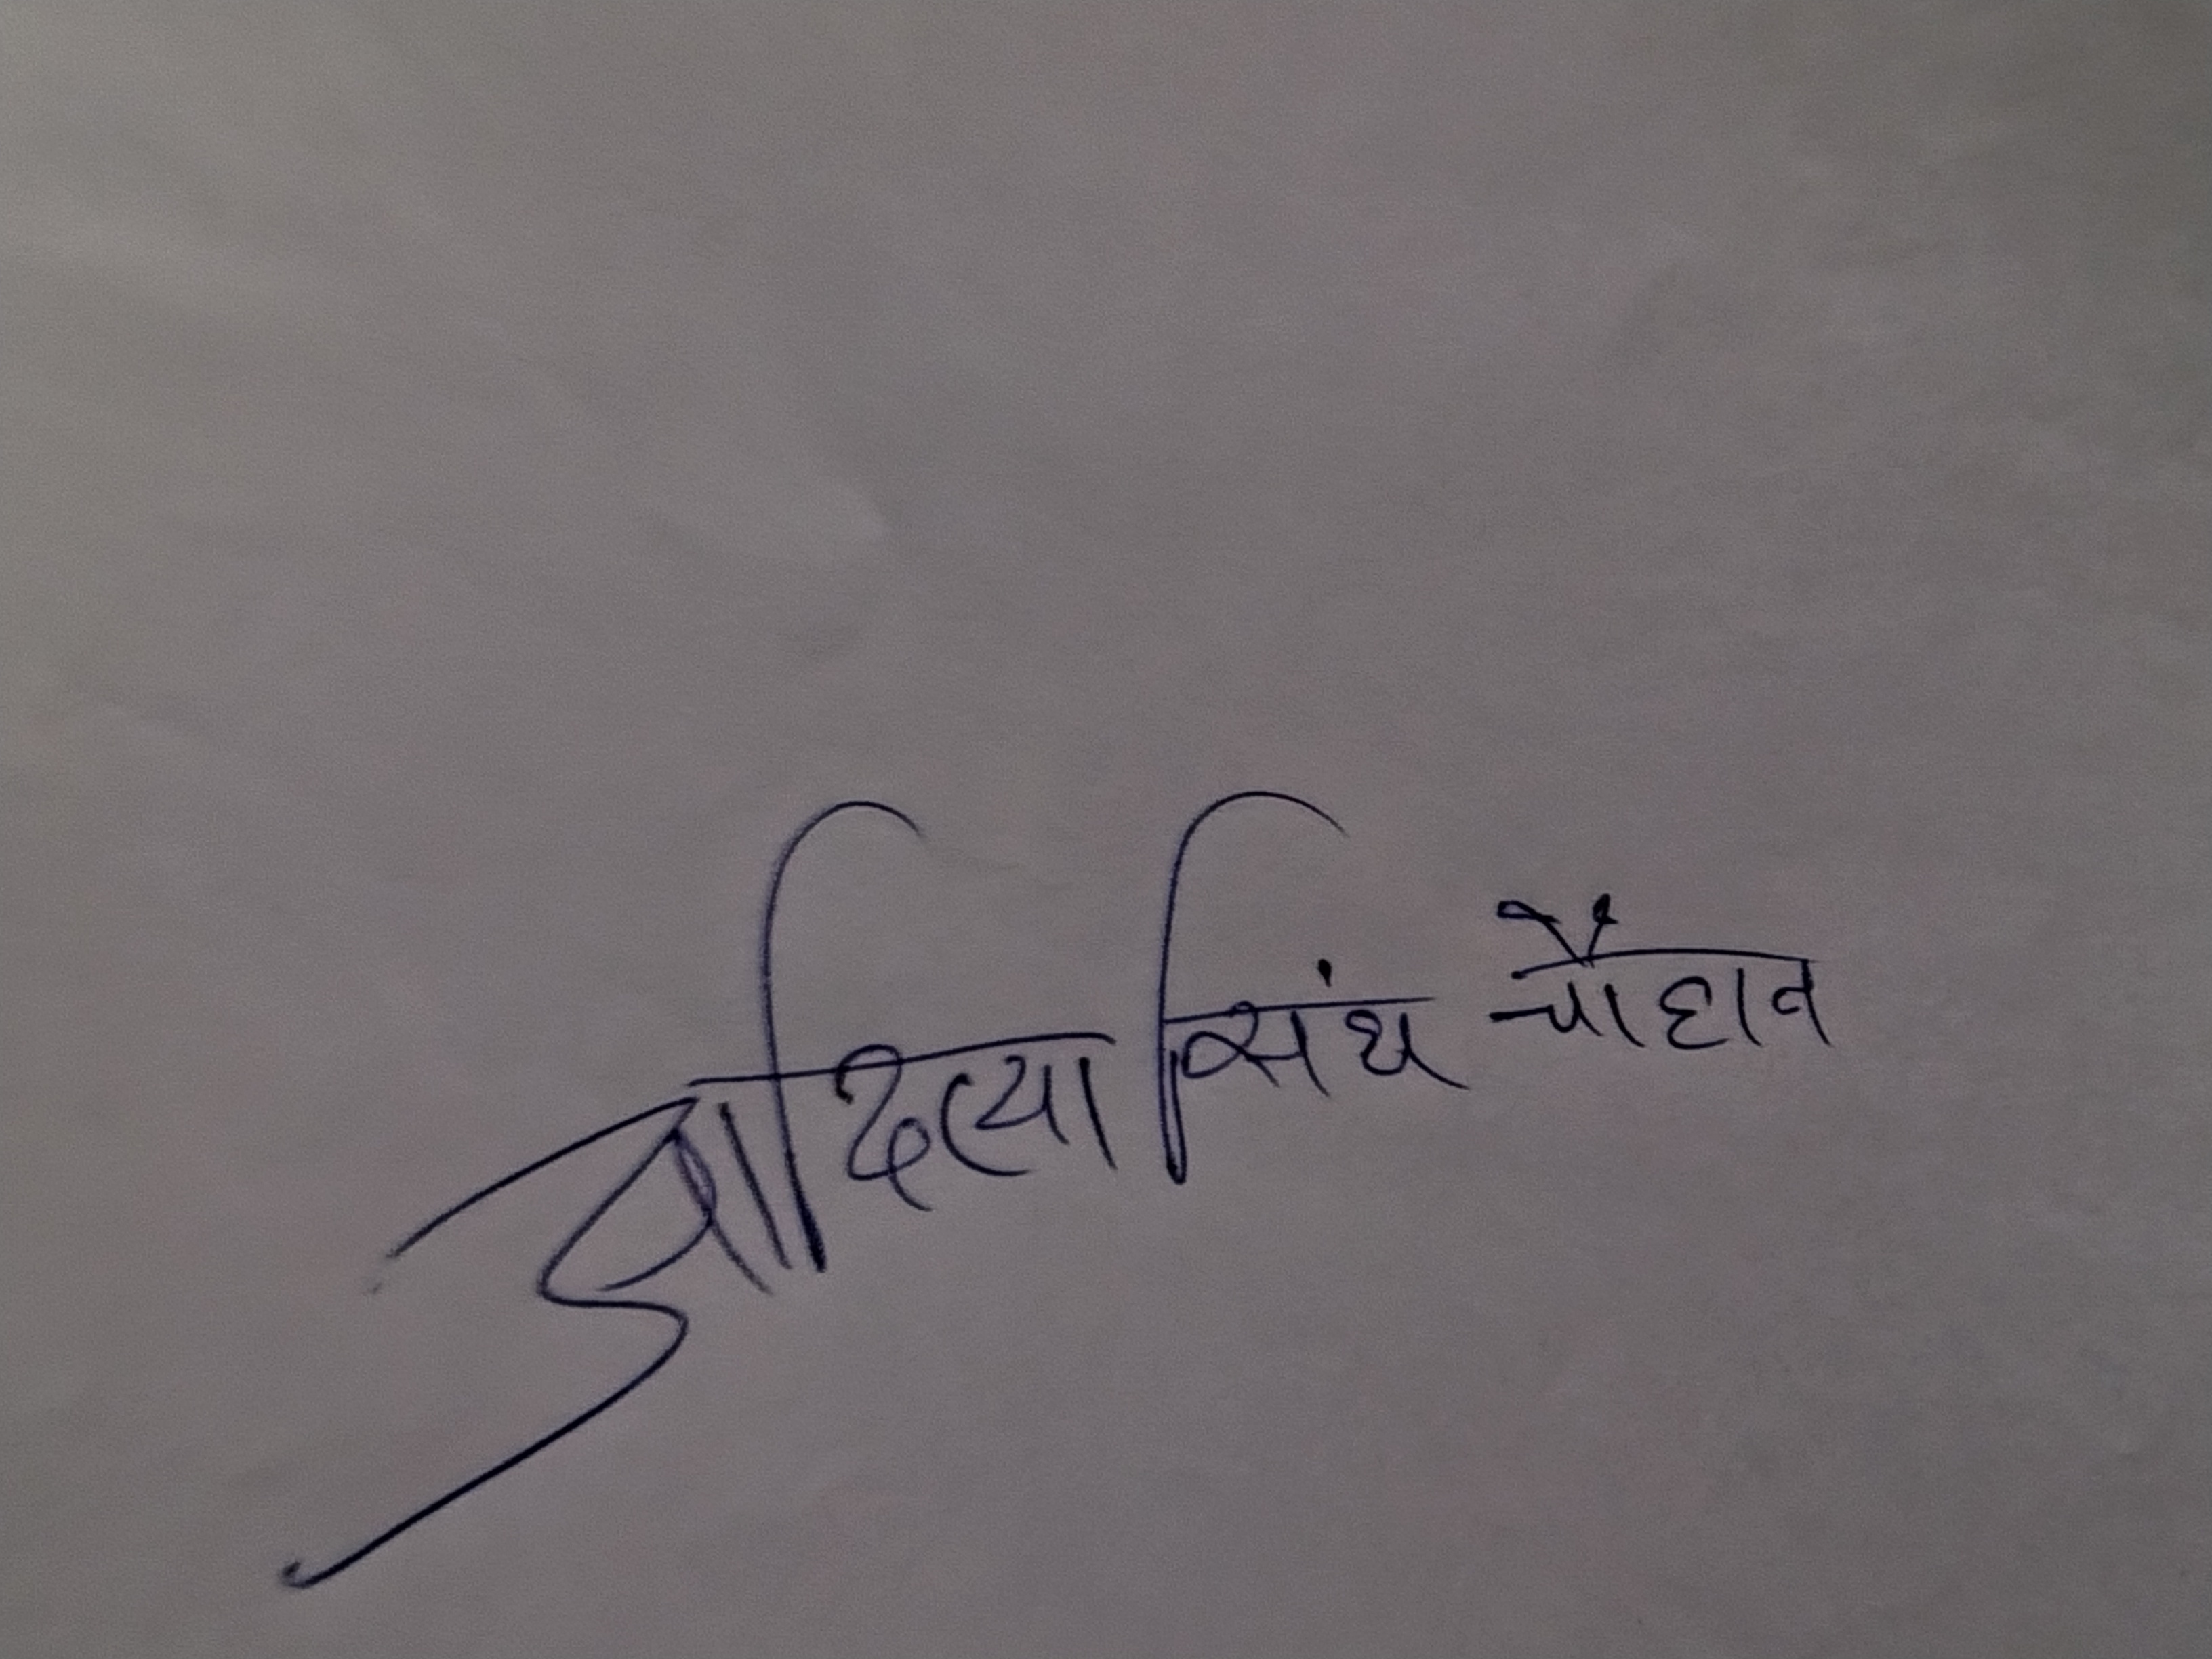 आदित्या सिंघ चौहान